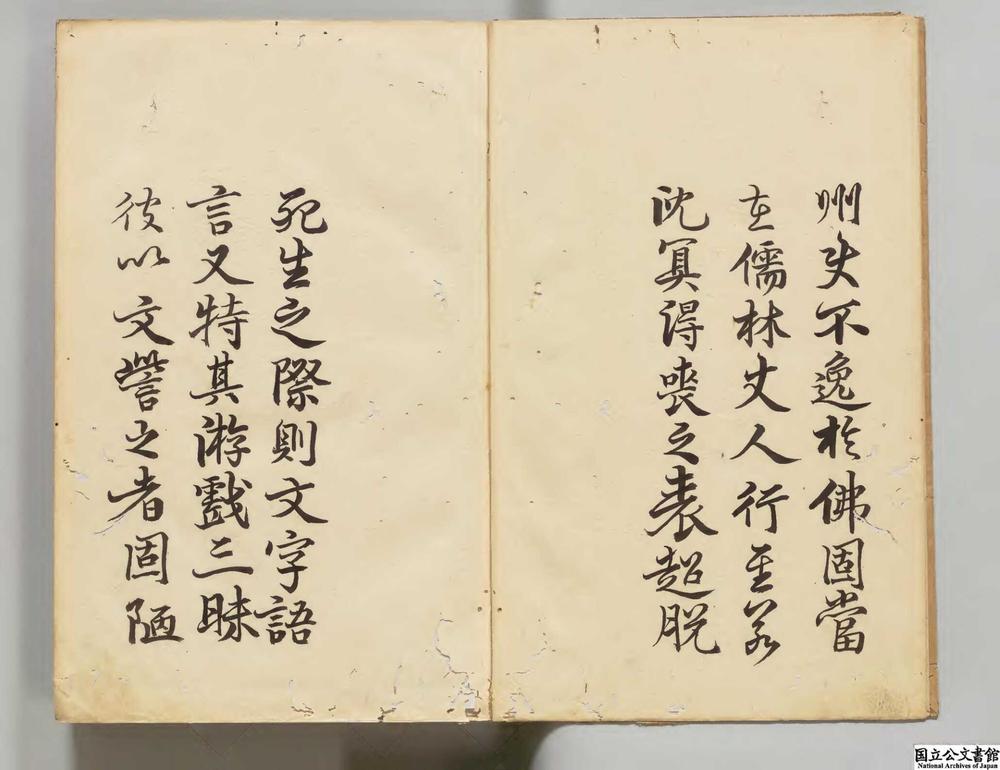 州不逸於佛固當
在儒林丈人行至若
沈冥得喪之表超脱
死生之際則文字語
言又特其游戲三昧
彼以文譽之者固陋
国立公文書館
National Archives of Japan